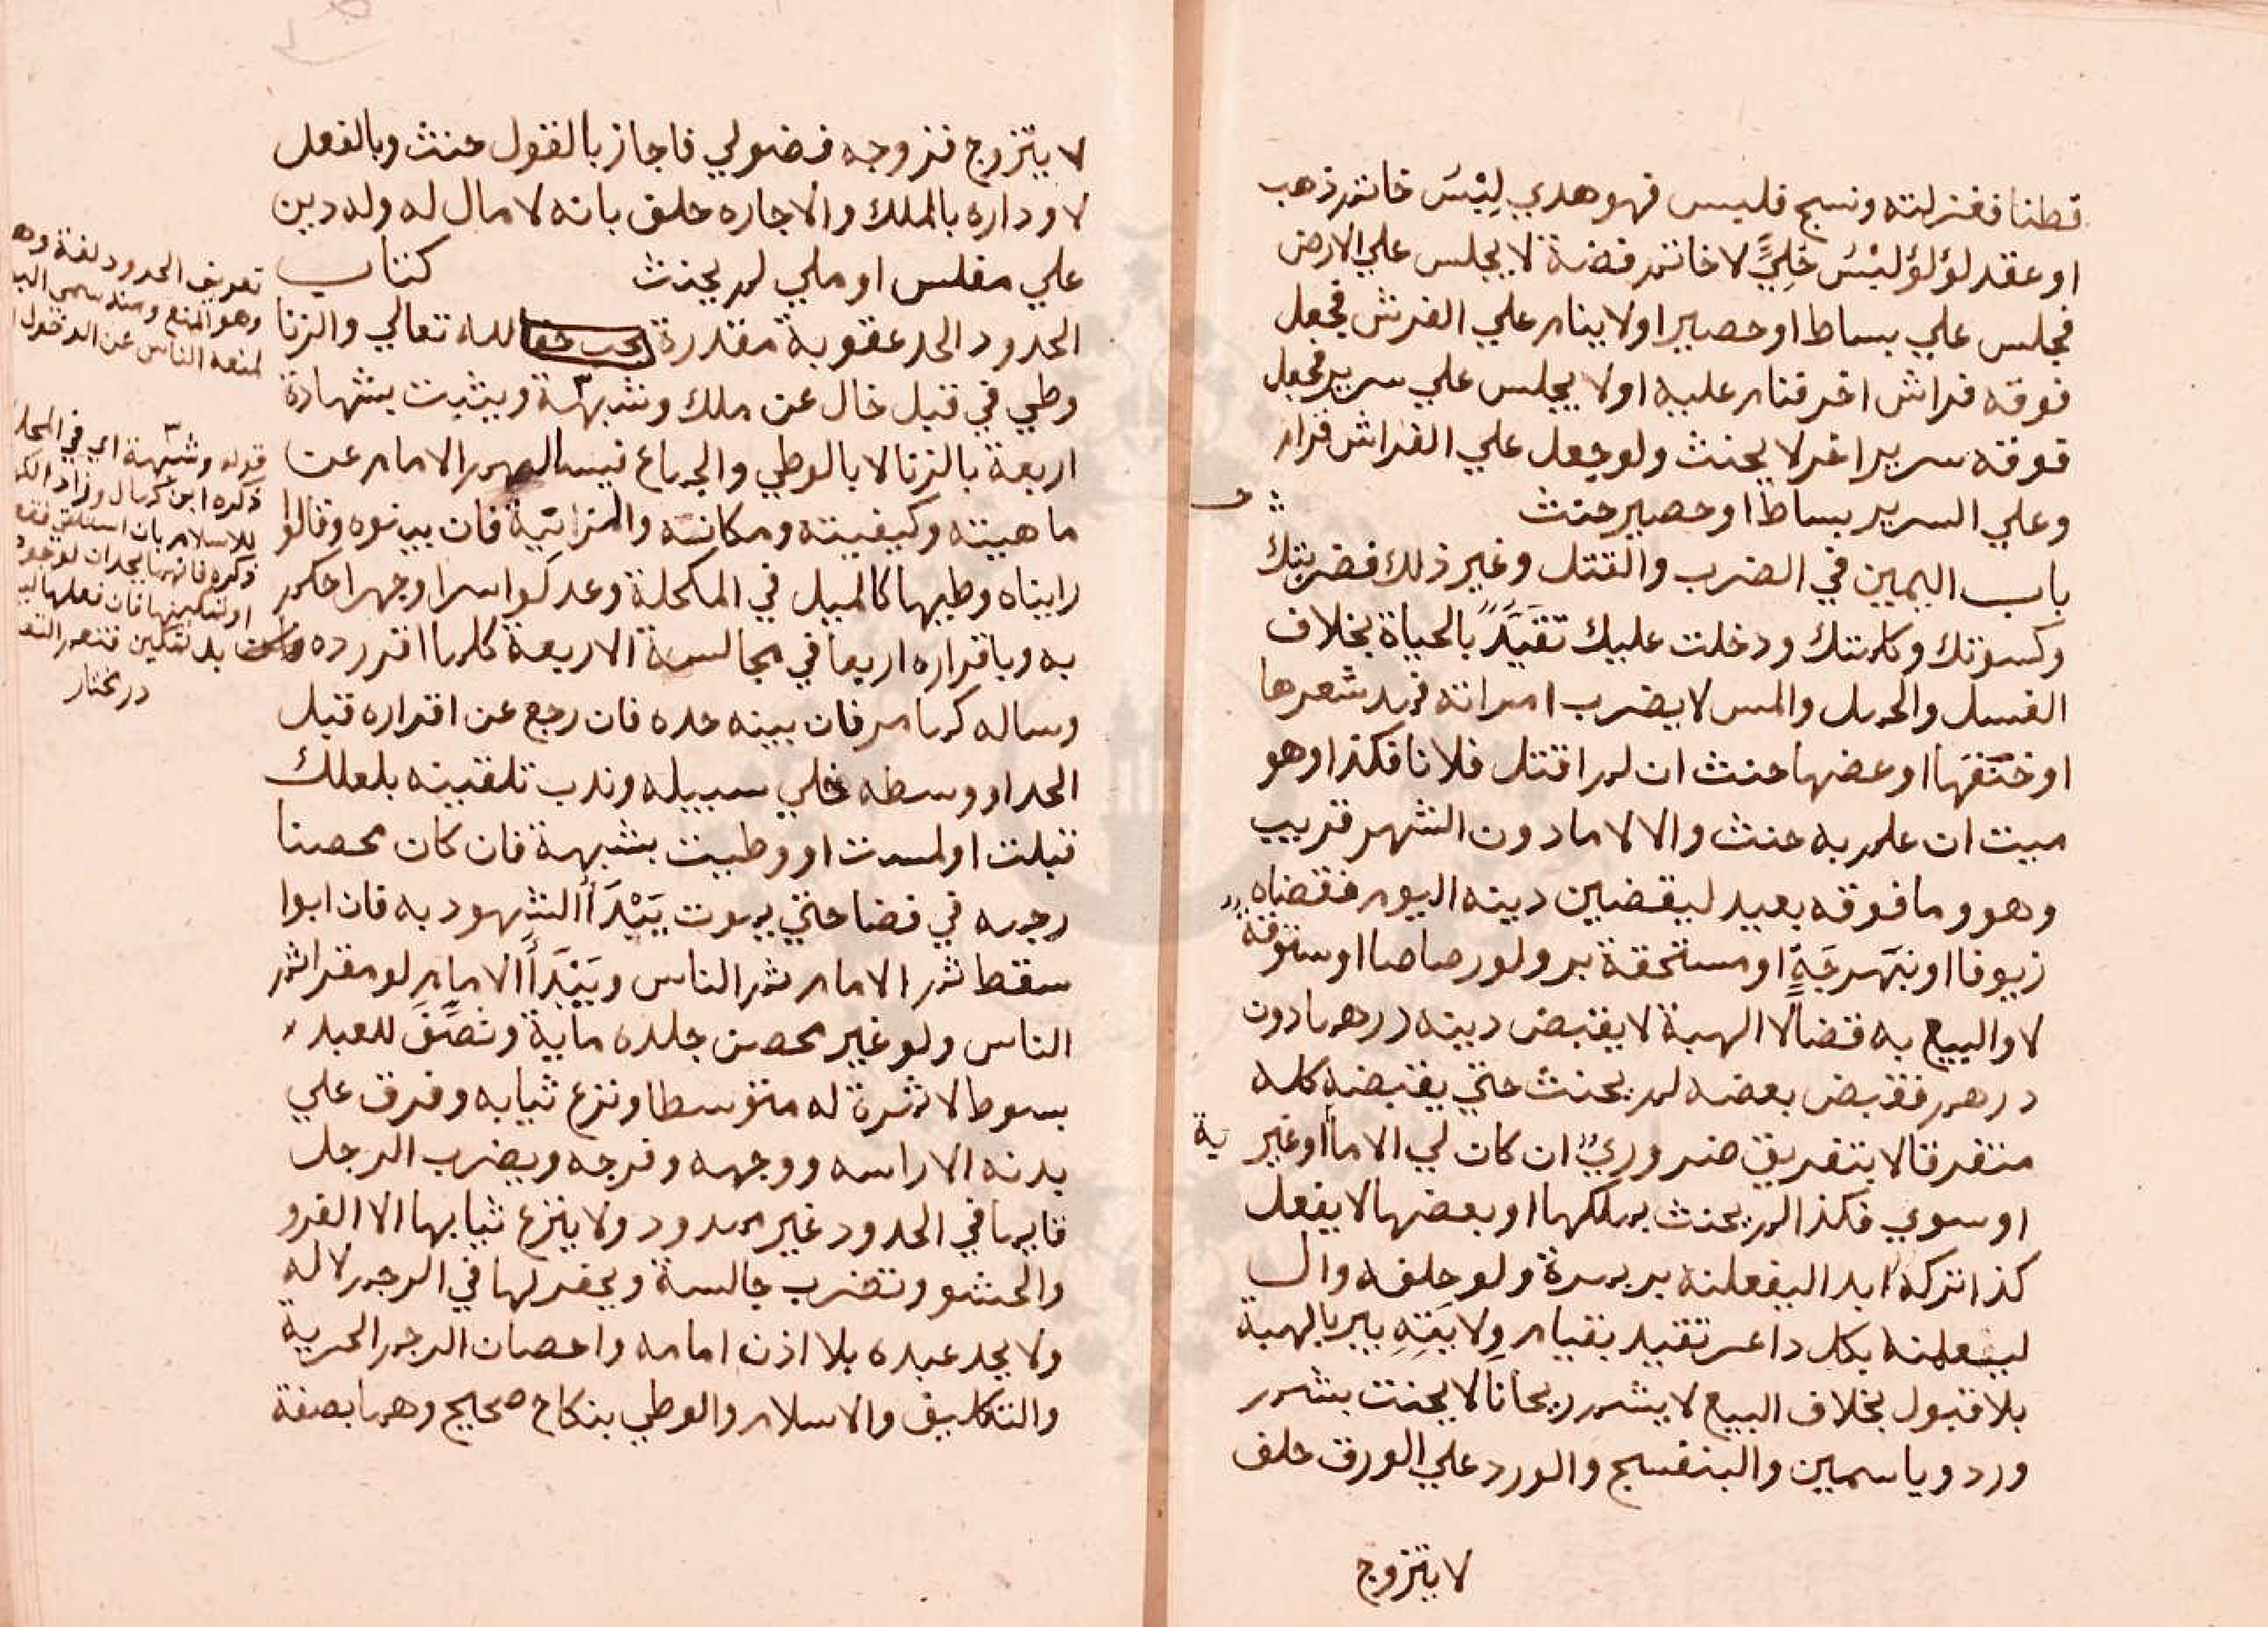 قطنا فغزلته ونسج فلبس فهو هدي لِبْسُ خاتم ذهب
او عقد لؤلؤ لبْسُ حُلِيّ لا خاتم فضة لا يجلس علي الارض
فجلس علي بساط او حصير اولا ينام علي الفرش فجعل
فوقه فراش اخر فنام عليه اولا يجلس علي سرير فجعل
فوقه سرير اخر لا يحنث ولو جعل علي الفراش قرام
وعلي السرير بساط او حصير حنث
باب اليمين في الضرب والقتل وغير ذلك فضربتك
وكسوتك وكلمتك ودخلت عليك تَقَيَّدَ بالحياة بخلاف
الغسل والحمل والمس لا يضرب امراته فمد شعرها
او خنقها او عضها حنث ان لم اقتل فلانا فكذا وهو
ميت ان علم به حنث والا لا مادون الشهر قريب
وهو وما فوقه بعيد ليقضين دينه اليوم فقضاه
زيوفا او نبَهرجَةً او مستحقة بر ولو رصاصا او ستوقة
لا والبيع به قضا لا الهبة لا يقبض دينه درهما دون
درهم فقبض بعضه لم يحنث حتي يقبضه كله
متفرقا لا بتفريق ضروريّ ان كان لي الا ماية او غير
او سوي فكذا لم يحنث بملكها او بعضها لا يفعل
كذا تركه ابدا ليفعلنه بر بمرة ولو حلفه وال
ليعلمنه بكل داعر تقيد بقيام وِلايَتِهِ يبر بالهبة
بلا قبول بخلاف البيع لا يشم ريحانا لا يحنث بشم
ورد وياسمين والبنفسج والورد علي الورق حلف
لا يتزوج
لا يتزوج فزوجه فضولي فاجاز بالقول حنث وبالفعل
لا وداره بالملك والاجاره حلف بانه لا مال له وله دين
علي مفلس او ملي لم يحنث كتاب
الحدود الحد عقوبة مقدرة تجب حقا لله تعالي والزنا
وطي في قبل خال عن ملك وشبهة ويثبت بشهادة
اربعة بالزنا لا بالوطي والجماع فيسالهم الامام عن
ماهيته وكيفيته ومكانه والمزانية فان بينوه وقالوا
رايناه وطيها كالميل في المكحلة وعدلوا سرا وجهرا حكم
به وباقراره اربعا في مجالسه الاربعة كلما اقر رده
وساله كما مر فان بينه حده فان رجع عن اقراره قبل
الحد او وسطه خلي سبيله وندب تلقينه بلعلك
قبلت او لمست او وطيت بشبهة فان كان محصنا
رجمه في فضا حتي يموت يَبْدَأُ الشهود به فان ابوا
سقط ثم الامام ثم الناس ويَبْدَأُ الامام لو مقرا ثم
الناس ولو غير محصن جلده ماية ونصّفَ للعبد
بسوط لا ثمرة له متوسطا ونزع ثيابه وفرق علي
بدنه الا راسه ووجهه وفرجه ويضرب الرجل
قايما في الحدود غير ممدود ولا ينزع ثيابها الا الفرو
والحشو وتضرب جالسة ويحفر لها في الرجم لا له
ولا يحد عبده بلا اذن امامه واحصان الرجم الحرية
والتكليف والاسلام والوطي بنكاح صحيح وهما بصفة
تعريف الحدود لغة وه
وهو المنع ومنه سمي الب
لمنعه الناس عن الدخول
قوله وشبهة اي في المحل
ذكره ابن كمال وزاد الك
ذكره فانهما يحدان لوجود
بل تمكين فتم الت
در مختار